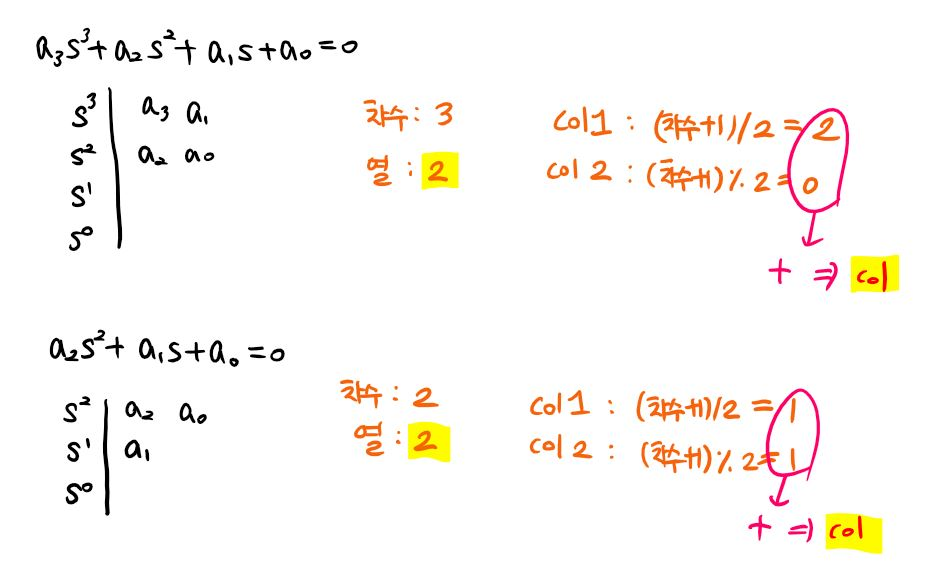 a₃s³+a₂s²+a₁s+a₀=0
s³ a₃ a₁
s² a₂ a₀
s¹
s⁰
차수: 3
열: 2
col1 : (차수+1)/2 = 2
col 2 : (차수+1)% 2 = 0
+ ⇒ col
a₂s²+a₁s+a₀=0
s² a₂ a₀
s¹ a₁
s⁰
차수: 2
열: 2
col1 : (차수+1)/2 = 1
col 2 : (차수+1)% 2 = 1
+ ⇒ col